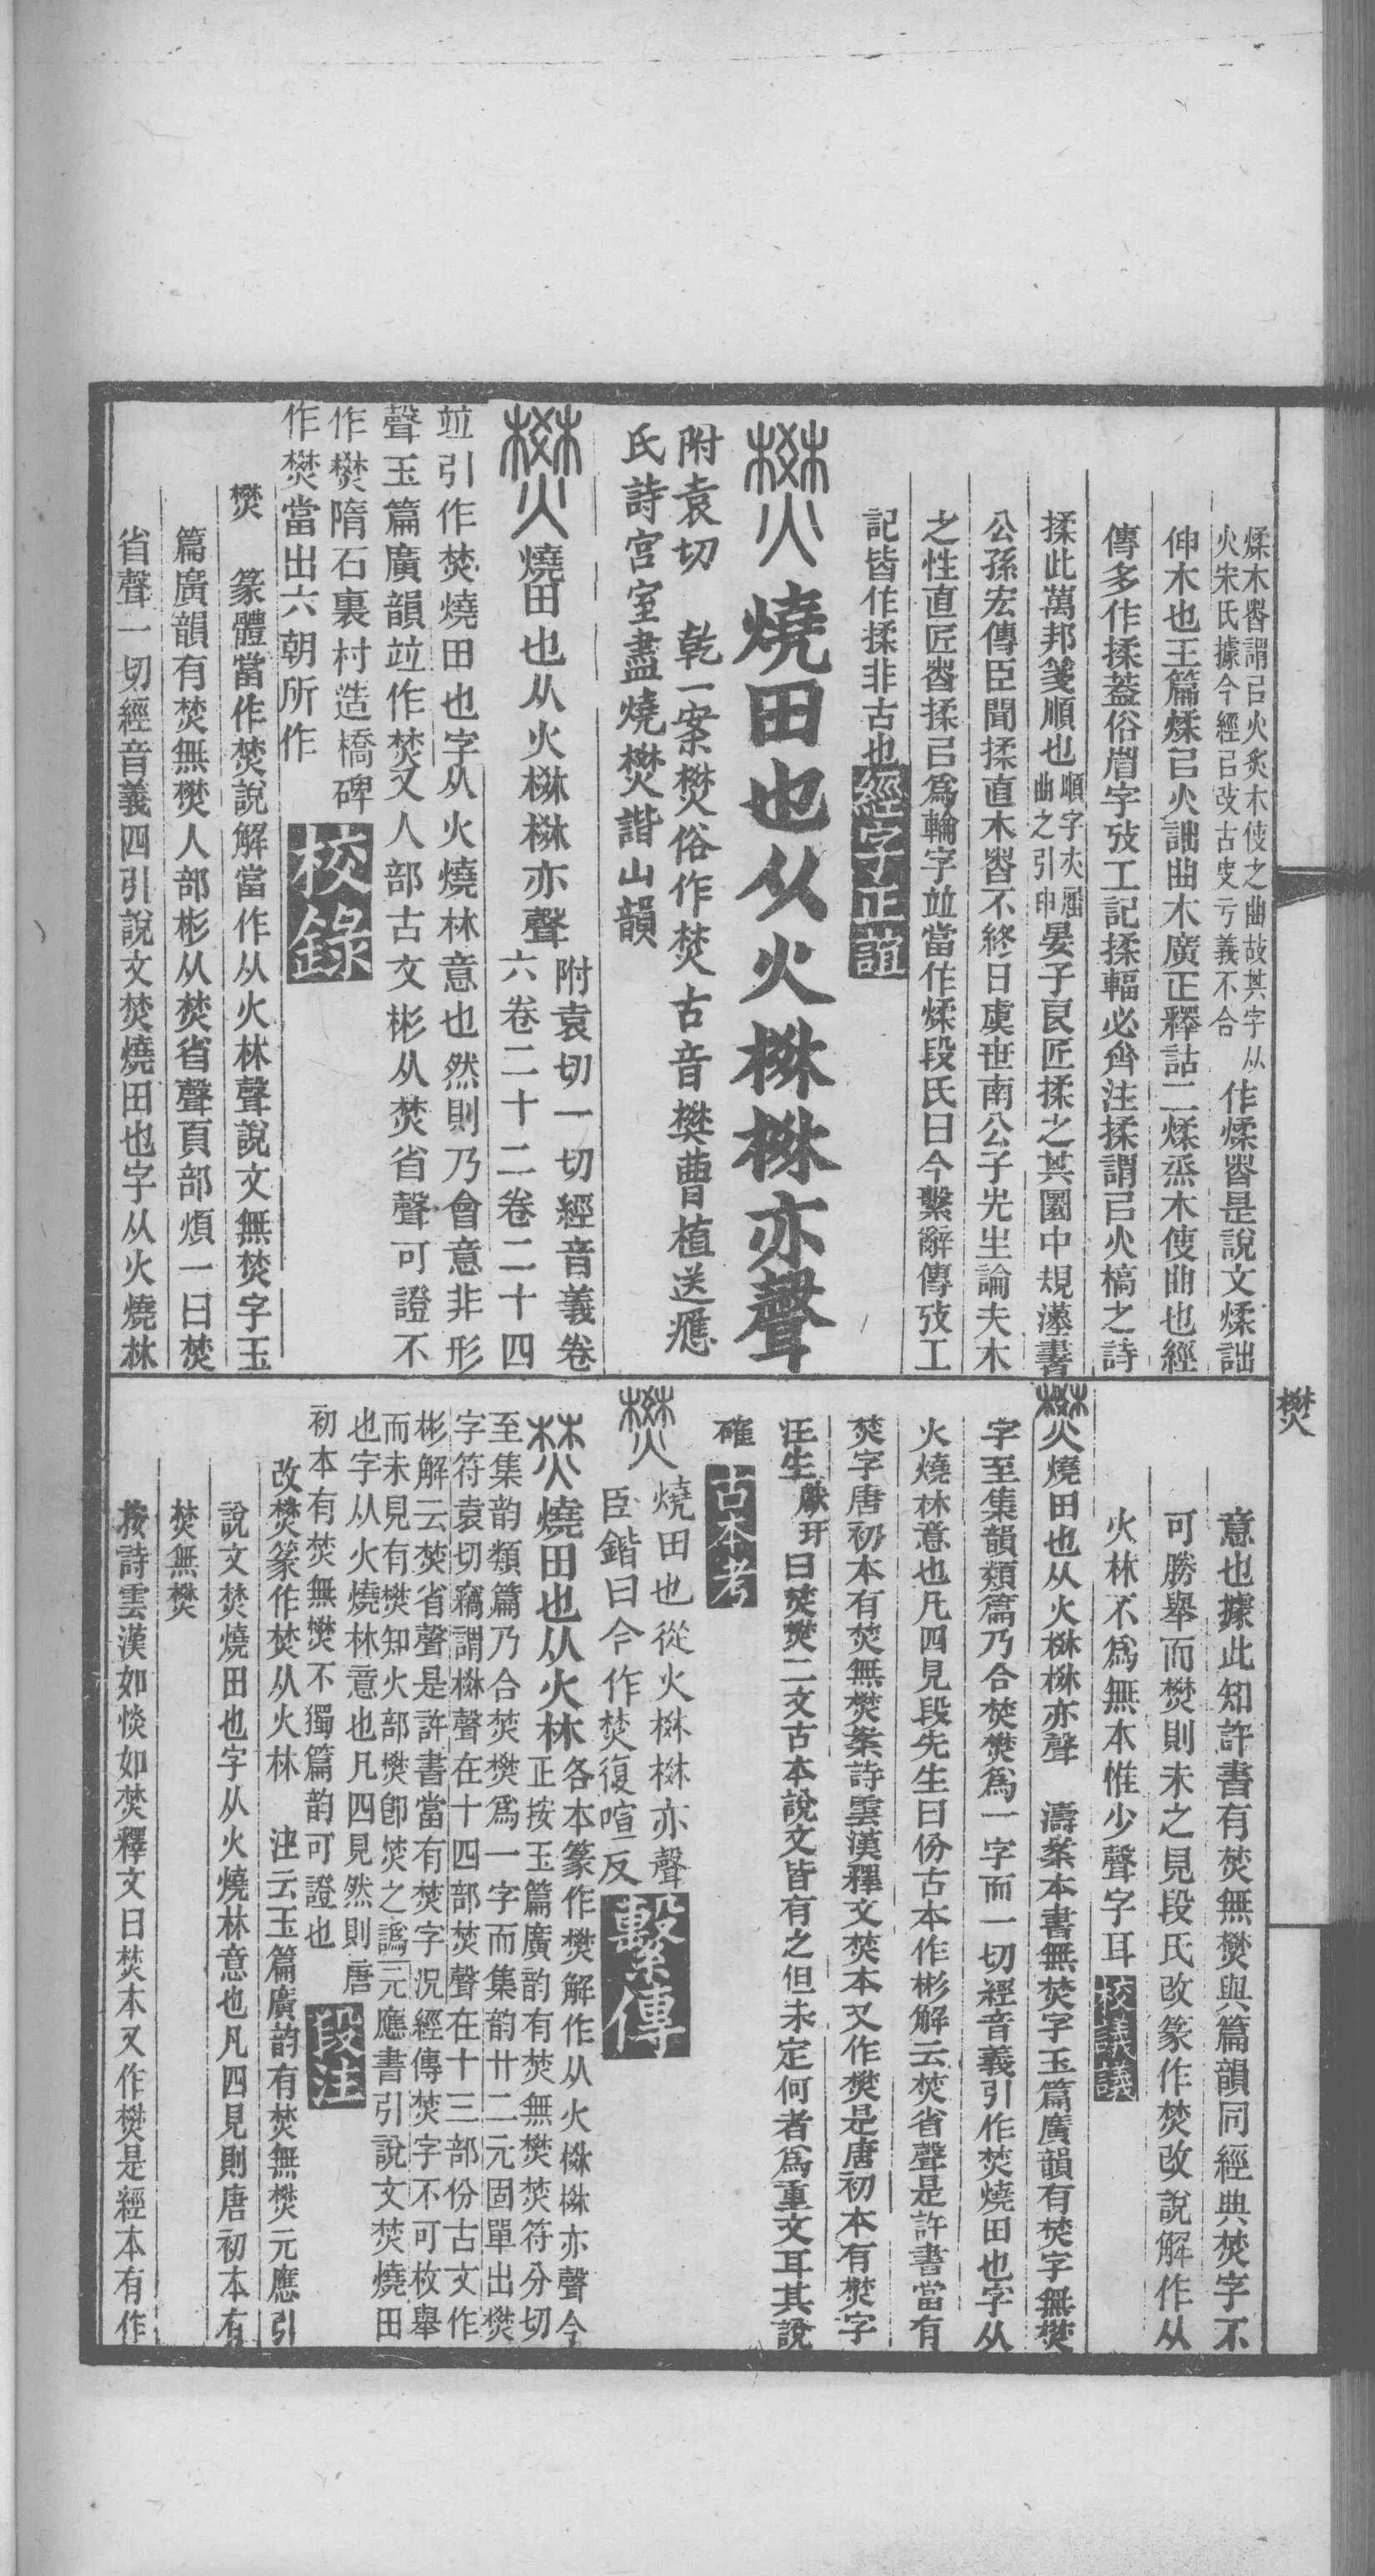 煣木㫺謂㠯火炙木使之曲故其字从
火宋氏據今經㠯改古叓亏義不合
作煣㫺是說文煣詘
伸木也玉篇煣㠯火詘曲木廣正釋詁二煣烝木使曲也經
傳多作揉蓋俗㡿字攷工記揉輻必齊注揉謂㠯火槁之詩
揉此萬邦箋順也
順字夾屈
曲之引申
晏子良匠揉之其圜中規漢書
公孫宏傳臣聞揉直木㫺不終日虞世南公子先生論夫木
之性直匠㫺揉㠯爲輪字竝當作煣段氏曰今繫辭傳攷工
記皆作揉非古也經字正誼
燓燒田也从火棥棥亦聲
附袁切 乾一案燓俗作焚古音樊曹植送應
氏詩宫室盡燒燓諧山韻
燓燒田也从火棥棥亦聲
附袁切一切經音義卷
六卷二十二卷二十四
竝引作焚燒田也字从火燒林意也然則乃會意非形
聲玉篇廣韻竝作焚又人部古文彬从焚省聲可證不
作燓隋石裏村造橋碑
作燓當出六朝所作校錄
燓 篆體當作焚說解當作从火林聲說文無焚字玉
篇廣韻有焚無燓人部彬从焚省聲頁部煩一曰焚
省聲一切經音義四引說文焚燒田也字从火燒林
燓
意也據此知許書有焚無燓與篇韻同經典焚字不
可勝舉而燓則未之見段氏改篆作焚改說解作从
火林不爲無本惟少聲字耳校議議
燓燒田也从火棥棥亦聲 濤案本書無焚字玉篇廣韻有焚字無燓
字至集韻類篇乃合焚燓爲一字而一切經音義引作焚燒田也字从
火燒林意也凡四見段先生曰份古本作彬解云焚省聲是許書當有
焚字唐初本有焚無燓案詩雲漢釋文焚本又作燓是唐初本有燓字
汪生獻玗曰焚燓二文古本說文皆有之但未定何者爲重文耳其說
確古本考
燓燒田也從火棥棥亦聲
臣鍇曰今作焚復喧反繫傳
焚燒田也从火林
各本篆作燓解作从火棥棥亦聲今
正按玉篇廣韵有焚無燓焚符分切
至集韵類篇乃合焚燓爲一字而集韵廿二元固單出燓
字符袁切竊謂棥聲在十四部焚聲在十三部份古文作
彬解云焚省聲是許書當有焚字況經傳焚字不可枚舉
而未見有燓知火部燓卽焚之譌元應書引說文焚燒田
也字从火燒林意也凡四見然則唐
初本有焚無燓不獨篇韵可證也段注
改燓篆作焚从火林 注云玉篇廣韵有焚無燓元應引
說文焚燒田也字从火燒林意也凡四見則唐初本有
焚無燓
按詩雲漢如惔如焚釋文曰焚本又作燓是經本有作